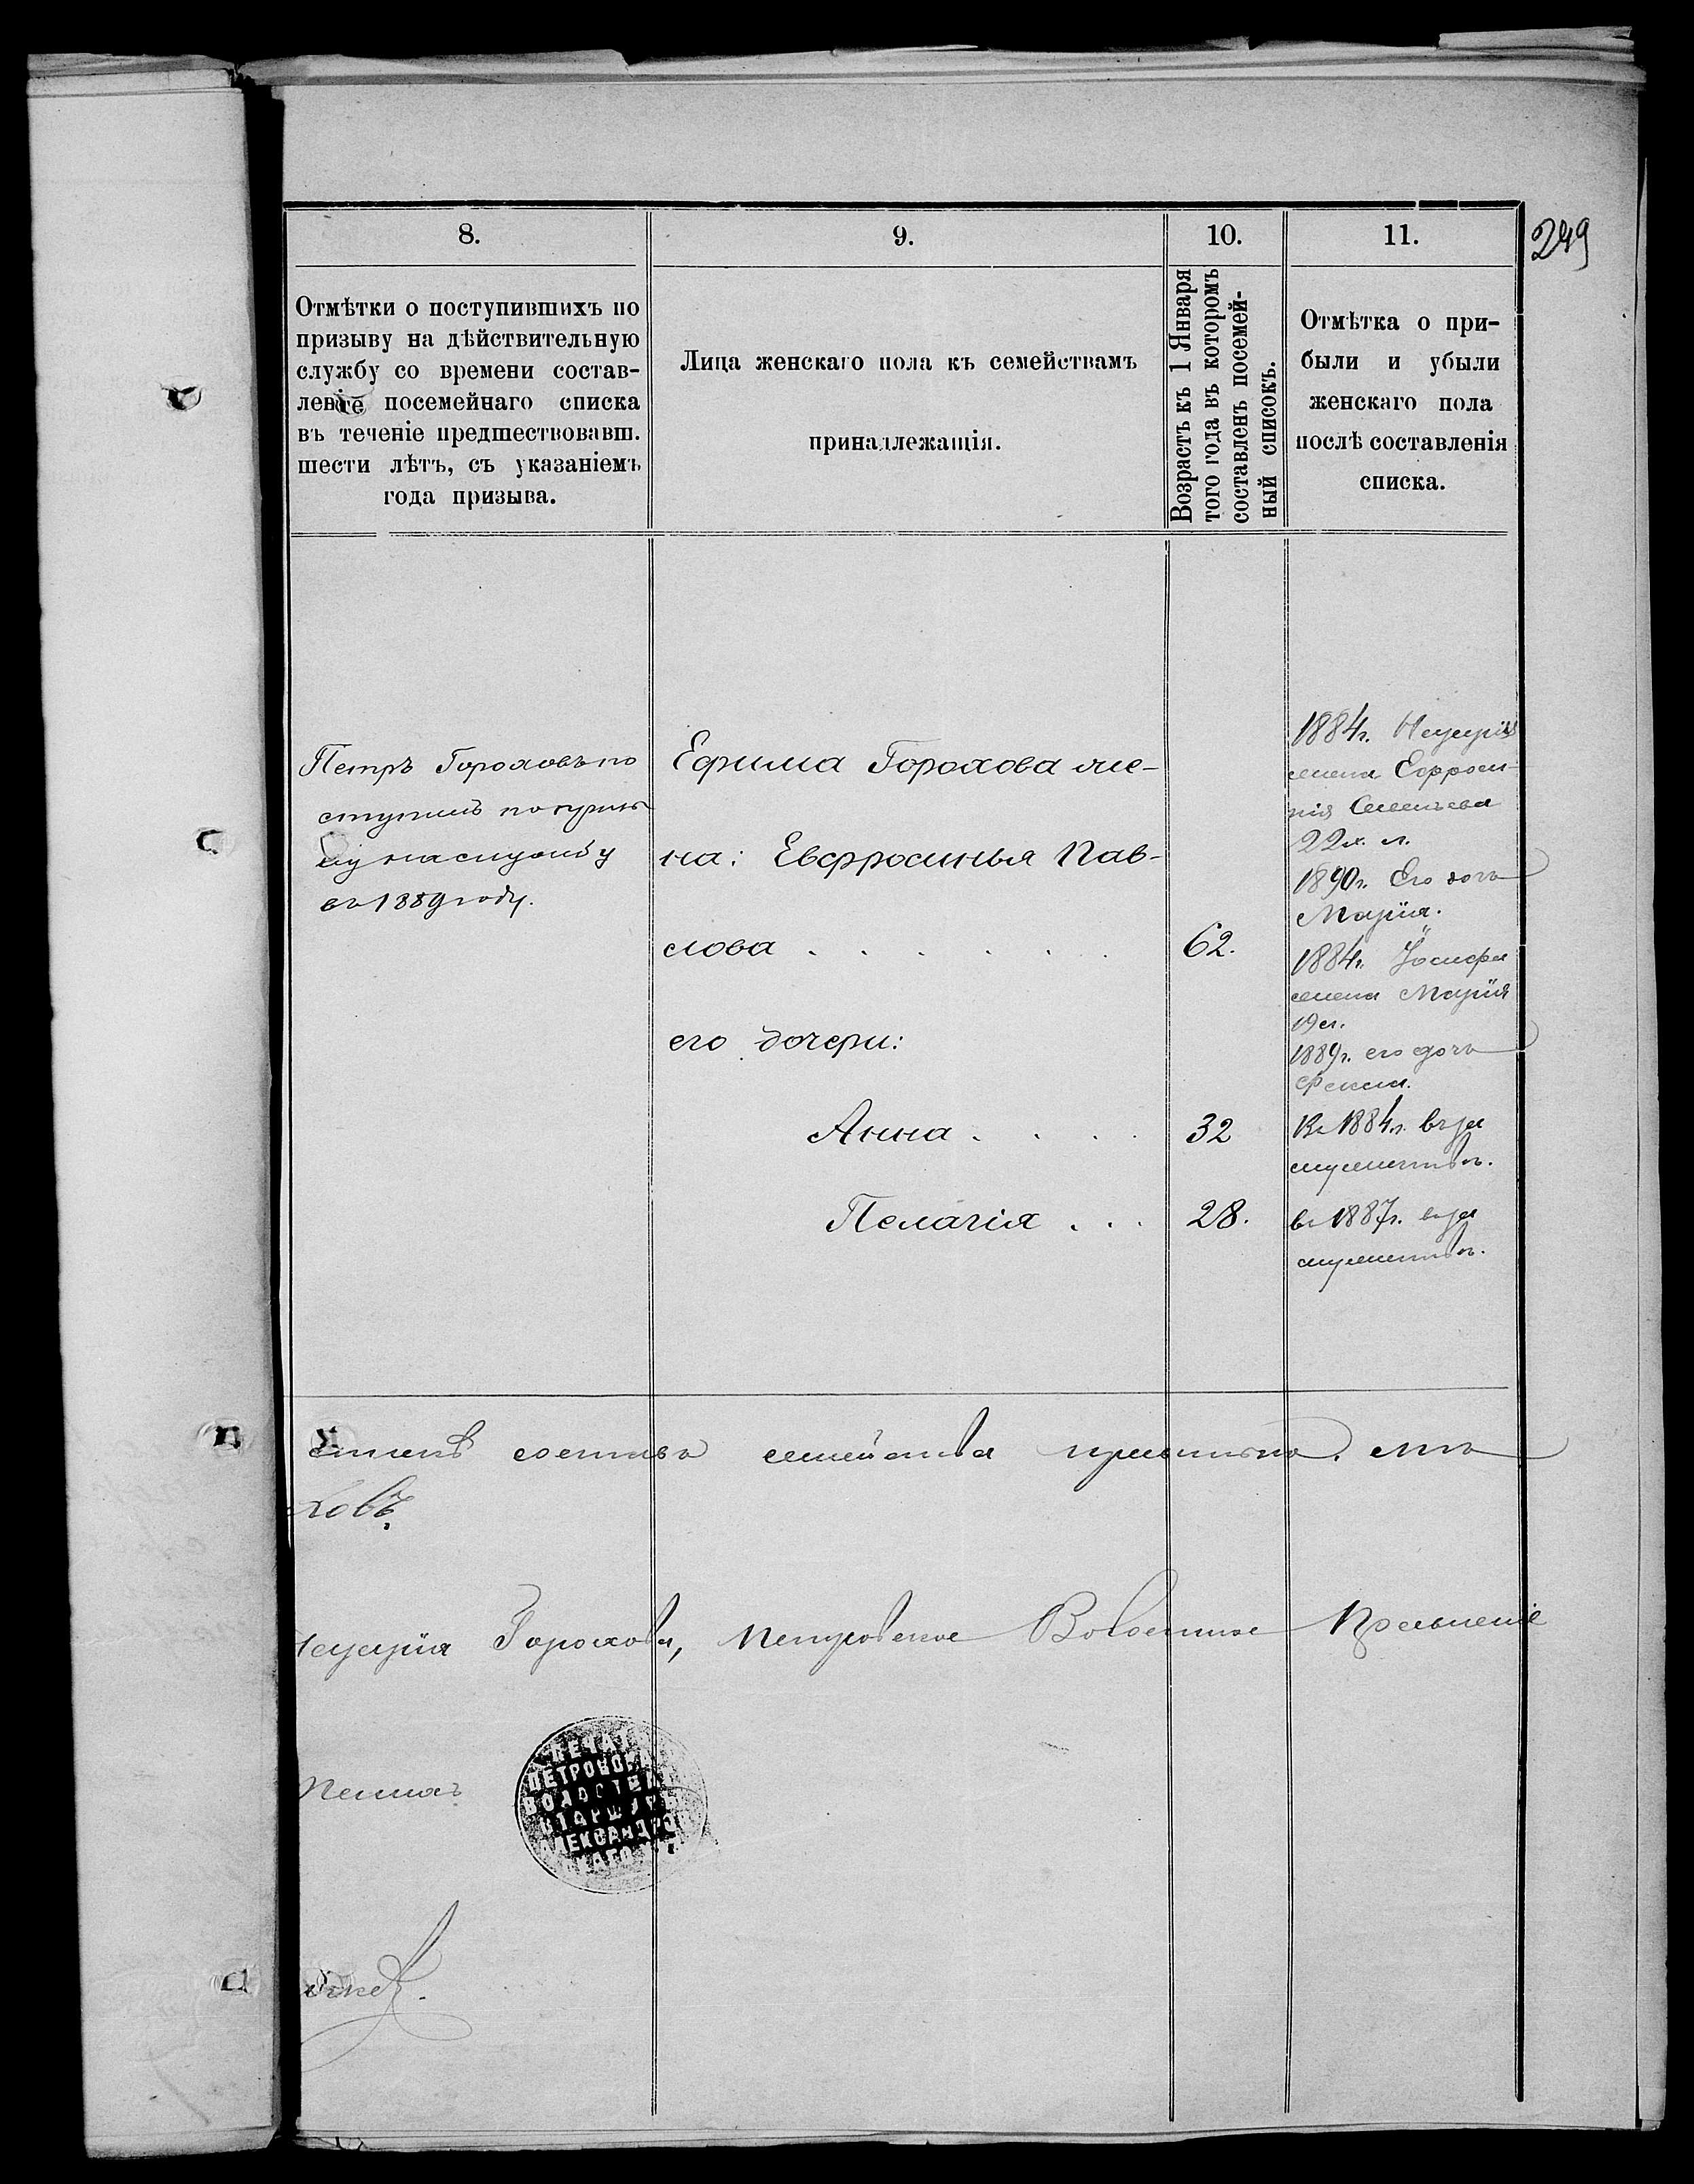 249
8.
Отмѣтки о поступившихъ по
призыву на дѣйствительную
службу со времени состав-
левіе посемейнаго списка
въ теченіе предшествовавш.
шести лѣтъ, съ указаніемъ
года призыва.
9.
Лица женскаго пола къ семействамъ
принадлежащія.
10.
Возрастъ къ 1 Января
того года въ которомъ
составленъ посемей-
ный списокъ.
11.
Отмѣтка о при-
были и убыли
женскаго пола
послѣ составленія
списка.
Петръ Гороховъ по
ступилъ
на службу
въ 1889 году.
Ефима Горохова же-
на: Евфросинья Пав-
лова . . . . . . 62.
его дочери:
Анна . . . . 32
Пелагія . . . 28.
1884г.
жена Ефроси-
нія
22х л.
1890г. Его дочь
Марія.
1884г. Іосифа
жена Марія
19 л.
1889г. его дочь
Въ 1884г. въ за
мужествѣ.
въ 1887г. въ за
мужествѣ.
составъ семейства
ховъ.
Горохова, Петровское Волостное Правленіе
ПЕЧАТЬ
ПЕТРОВСКА
ВОЛОСТН
СТАРШИНЫ
АЛЕКСАНДРО